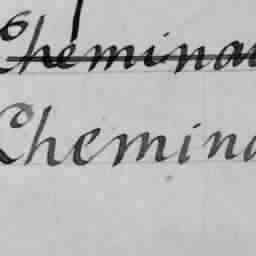 Cheminau
Chemina